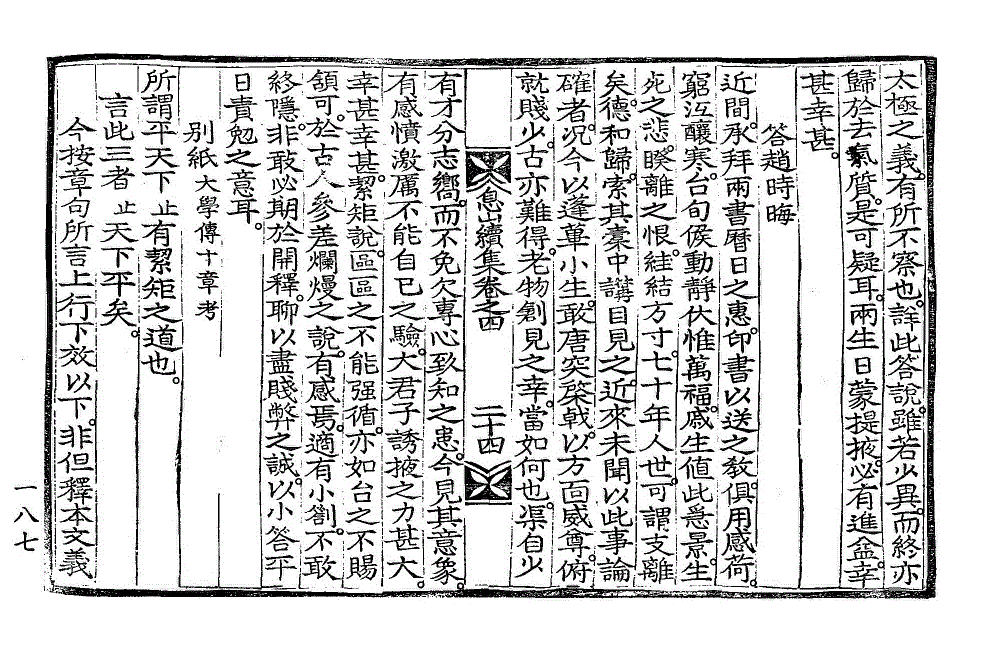 太極之義。有所不察也。詳此答說。雖若少異。而終亦
歸於去氣質。是可疑耳。兩生日蒙提掖。必有進益。幸
甚幸甚。
答趙時晦
近間。承拜兩書曆日之惠。印書以送之敎。俱用感荷。
窮沍釀寒。台旬候動靜伏惟萬福。戚生値此惡景。生
死之悲。睽離之恨。絓結方寸。七十年人世。可謂支離
矣。德和歸。索其橐中講目見之。近來未聞以此事論
確者。況今以蓬蓽小生。敢唐突棨戟。以方面威尊。俯
就賤少。古亦難得。老物創見之幸。當如何也。渠自少
息山續集卷之四
二十四
有才分志嚮。而不免欠專心致知之患。今見其意象。
有感憤激厲不能自已之驗。大君子誘掖之力甚大。
幸甚幸甚。絜矩說。區區之不能强循。亦如台之不賜
頷可。於古人參差爛熳之說。有感焉。適有小劄。不敢
終隱。非敢必期於開釋。聊以盡賤弊之誠。以小答平
日責勉之意耳。
別紙 大學傳十章考
所謂平天下 止 有絜矩之道也。
言此三者 止 天下平矣。
今按章句所言上行下效以下。非但釋本文義
一八七